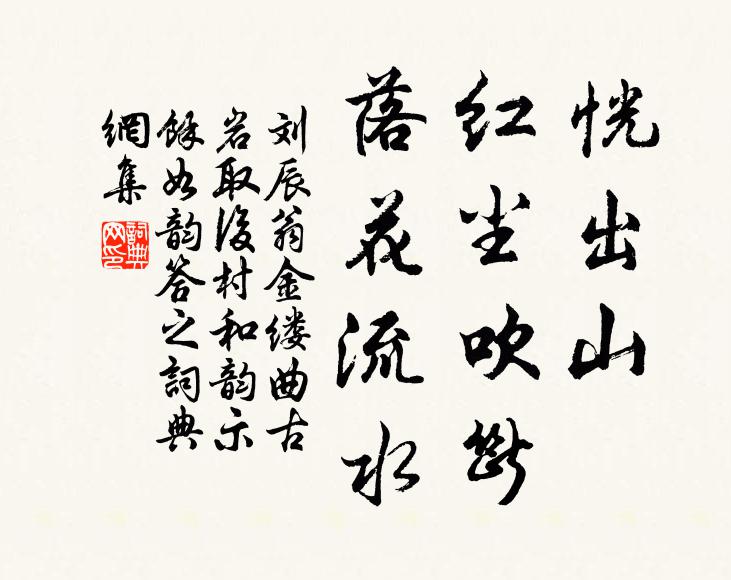 恍出山
红尘吹断
落花流水
刘辰翁金缕曲古
岩取后村和韵示
余如韵答之词典
网集
词典网印